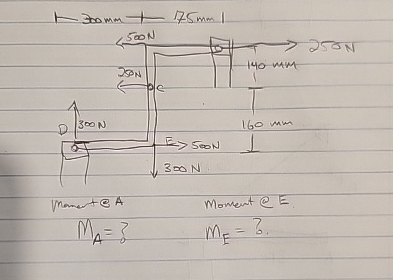 300mm 175mm
500N
250N
140 mm
250N
C
D 300N
160 mm
E 500N
300N
Moment @ A Moment @ E
MA = ? ME = ?